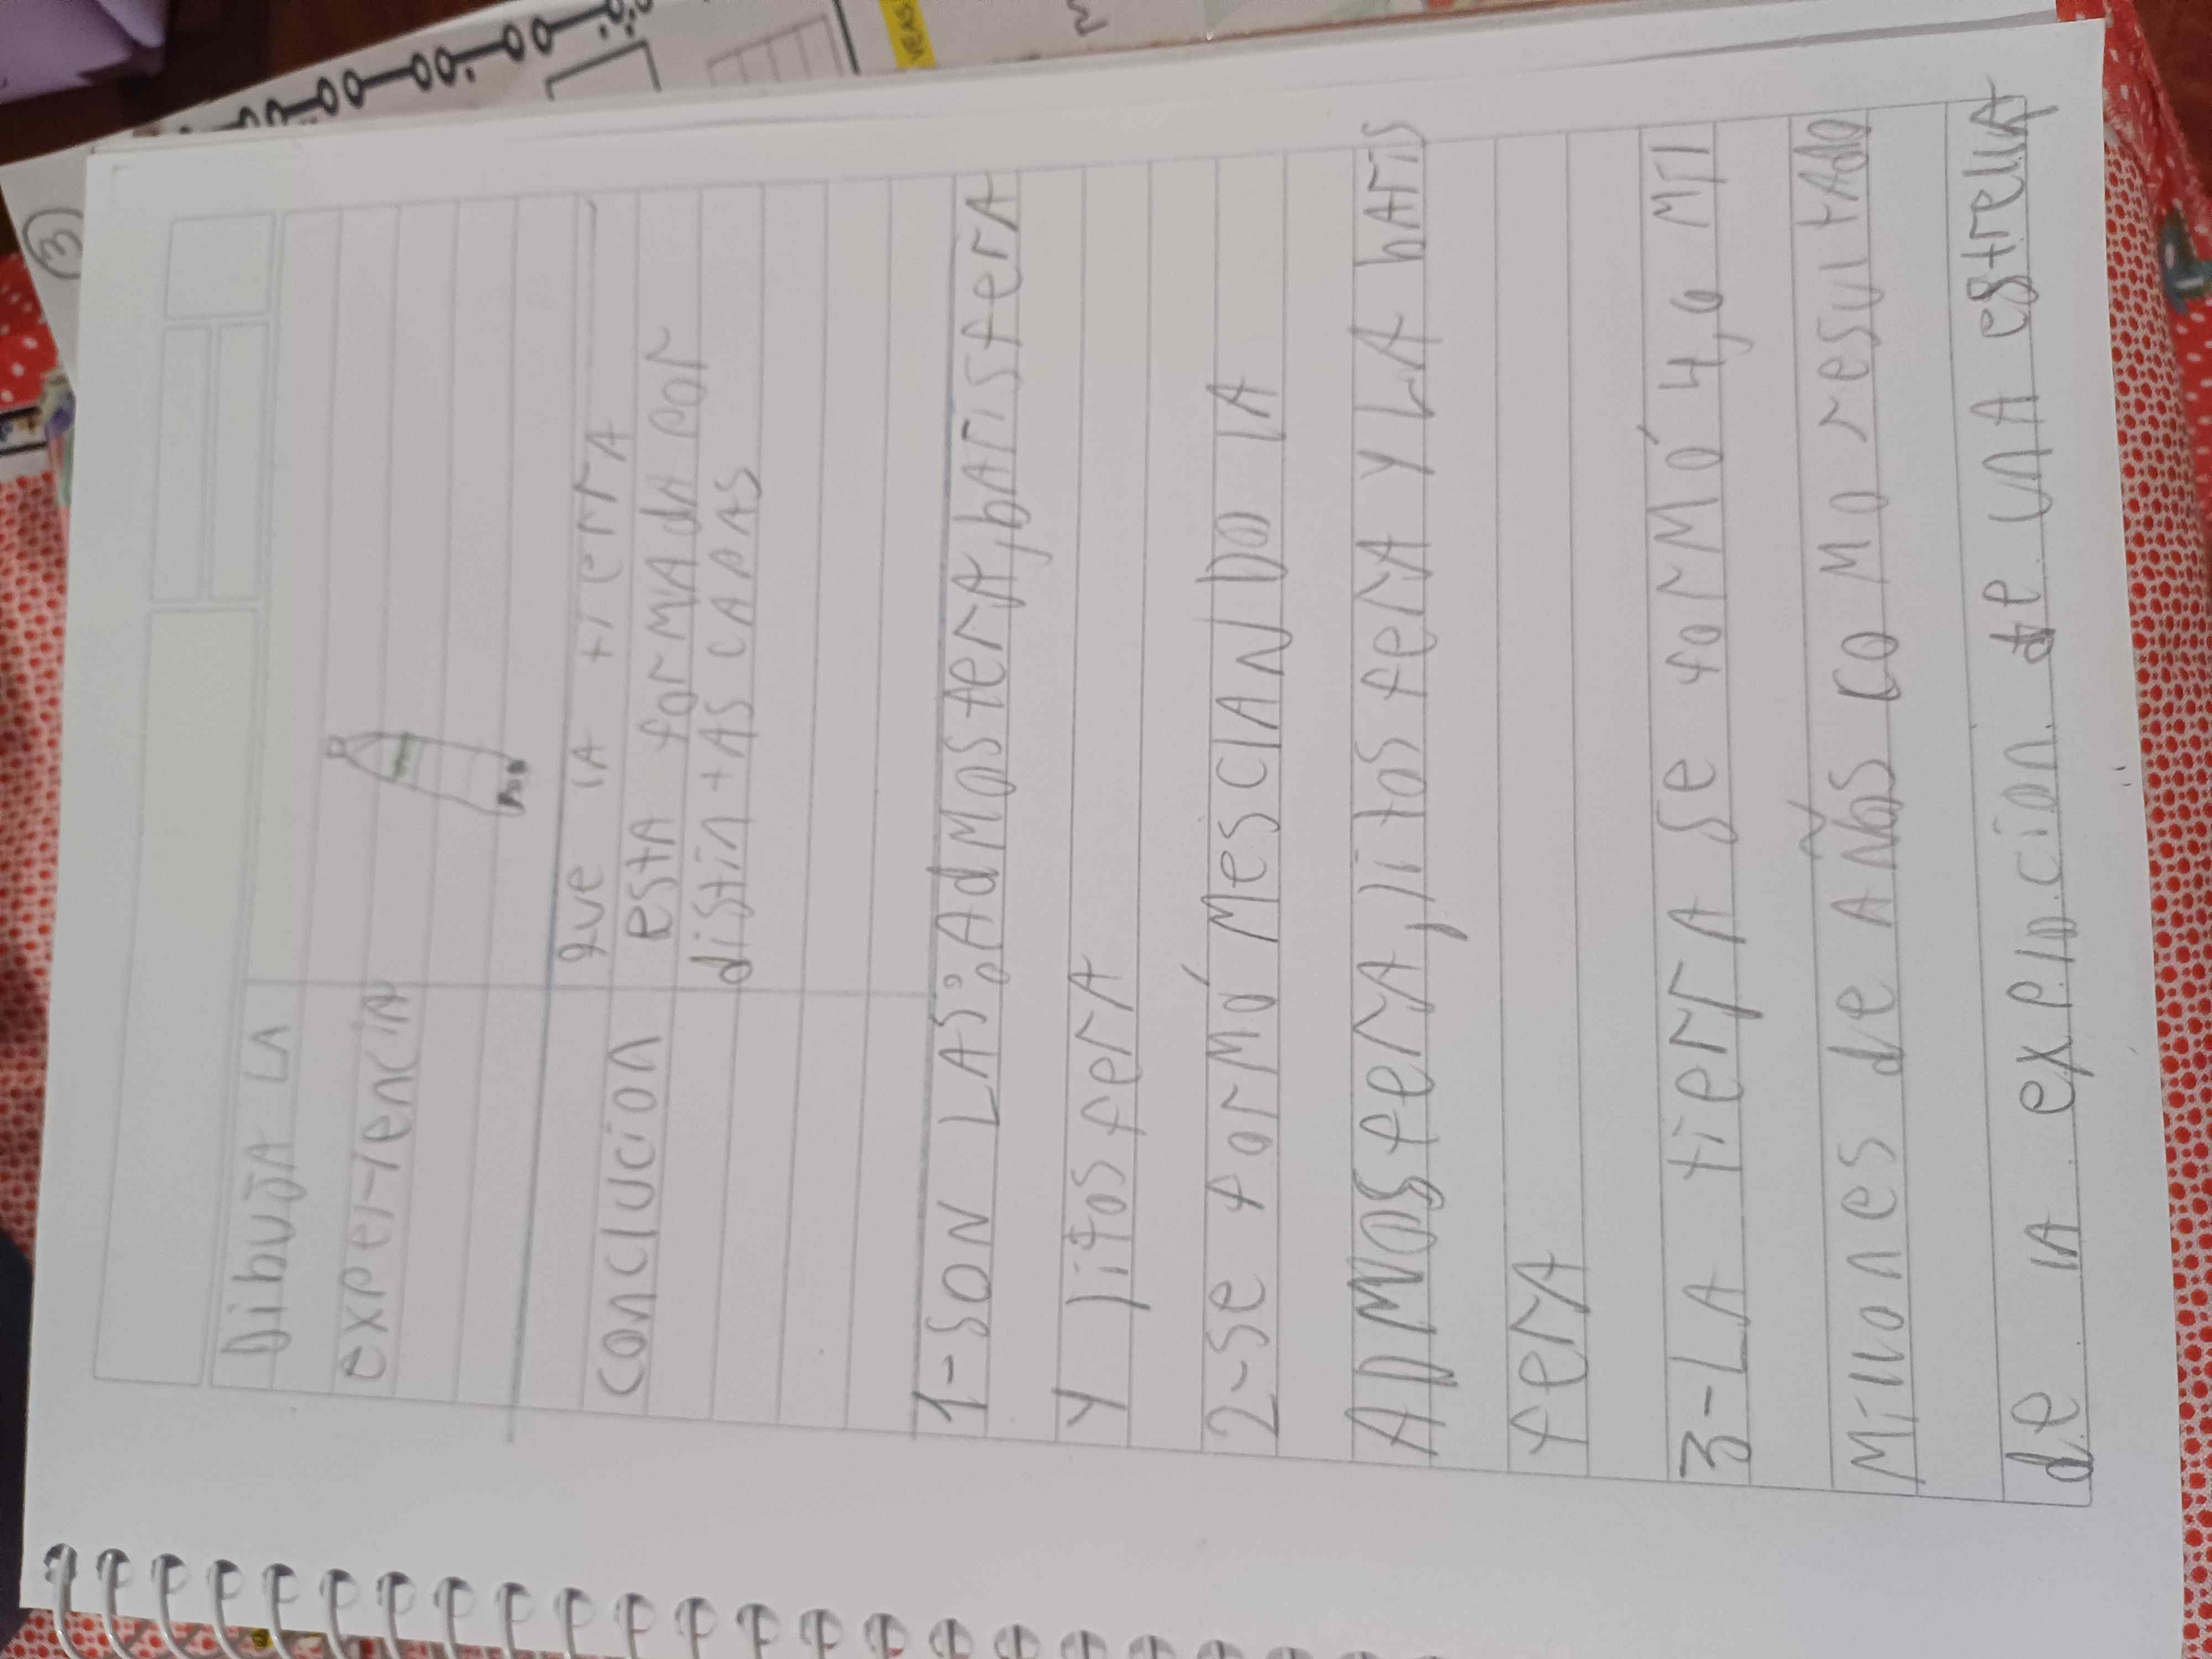 DibuJA LA
experiencia
conclucion
que lA tierrA
estA forMAdA por
distintAS CAPAS
1-SON LAS: AdMosferA, bArisferA
Y litosferA
2-Se formó MesclANDO lA
ADMosferA, litosferA Y LA bAris
ferA
3-LA tierrA se forMó 4,0 Mil
Millones de AÑos coMo resultAdo
de lA explocion de unA estrellA
3